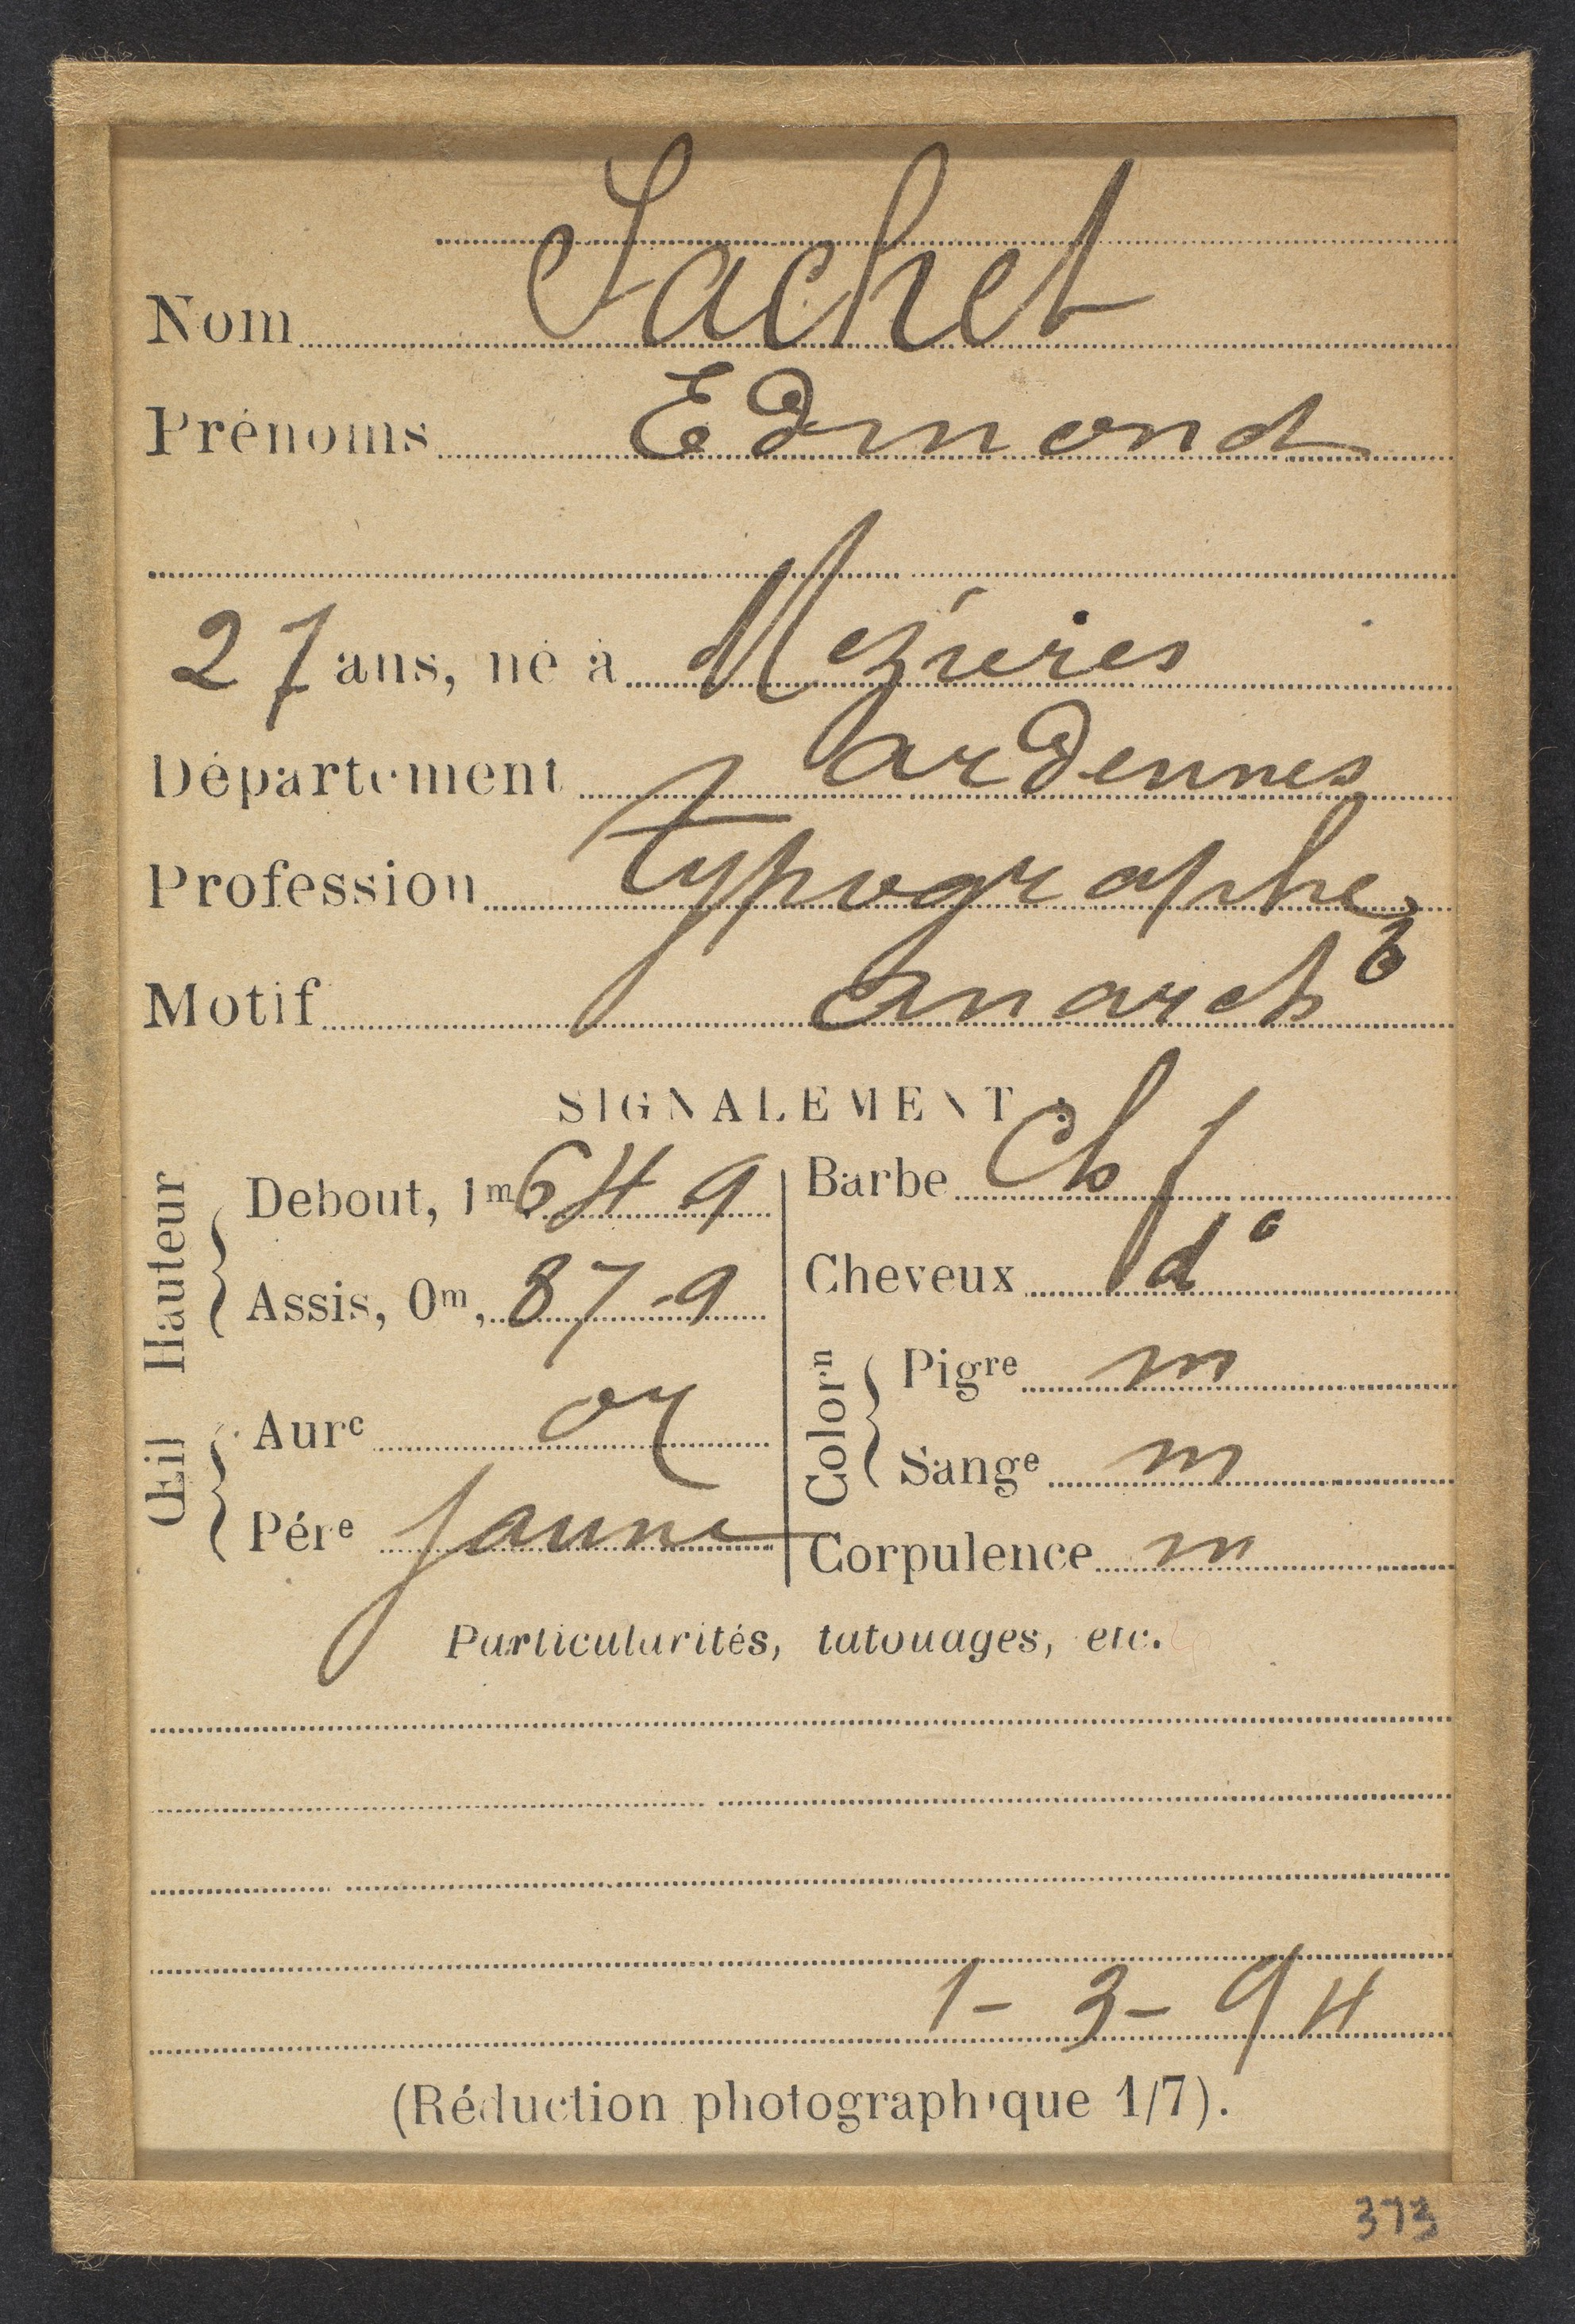 Nom Sachet
Prénoms Edmond
27 ans, né à Mézières
Département ardennes
Profession typographe
Motif anarch
SIGNALEMENT :
Hauteur
Debout, 1m 64 9
Assis, 0m, 87-9
Œil
Aure or
Pére jaune
Barbe Ch f
Cheveux d°
Colorn
Pigre m
Sange m
Corpulence m
Particularités, tatouages, etc.
1-3-94
(Réduction photographique 1/7).
373